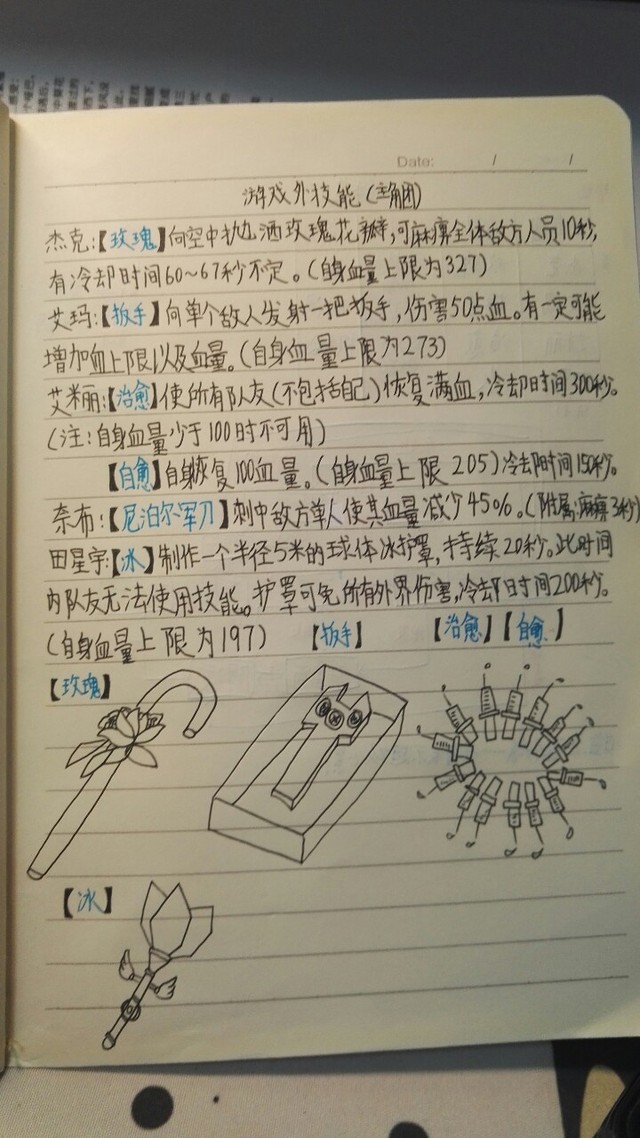 Date: / /
游戏外技能(主角团)
杰克:【玫瑰】向空中抛洒玫瑰花瓣,可麻痹全体敌方人员10秒,
有冷却时间60~67秒不定。(自身血量上限为327)
艾玛:【扳手】向单个敌人发射一把扳手,伤害50点血。有一定可能
增加血上限以及血量。(自身血量上限为273)
艾米丽:【治愈】使所有队友(不包括自己)恢复满血,冷却时间300秒。
(注:自身血量少于100时不可用)
【自愈】自身恢复100血量。(自身血量上限205)冷却时间150秒。
奈布:【尼泊尔军刀】刺中敌方单人使其血量减少45%。(附属:麻痹3秒)
田星宇:【冰】制作一个半径5米的球体冰护罩,持续20秒。此时间
内队友无法使用技能。护罩可免所有外界伤害,冷却时间200秒。
(自身血量上限为197) 【扳手】 【治愈】【自愈】
【玫瑰】
【冰】